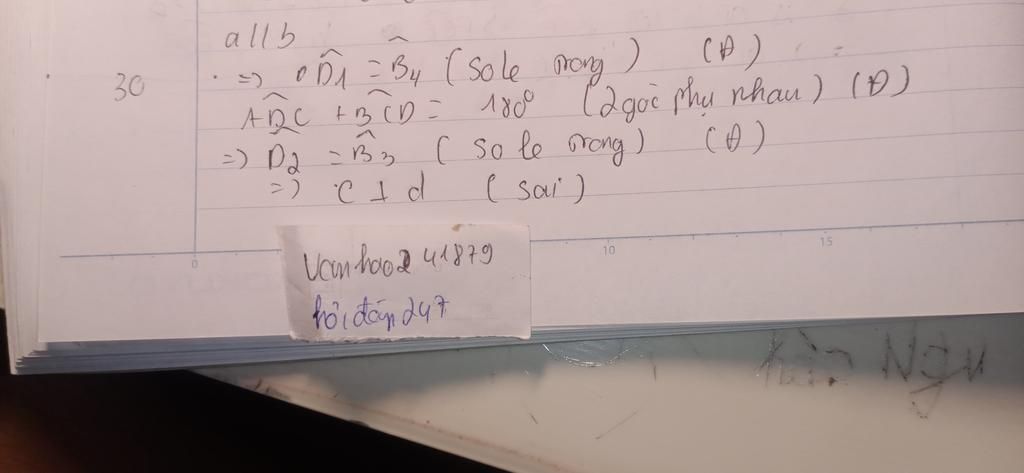 a//b
30
=> D̂1 = B̂4 (so le trong) (Đ)
ADC + BCD = 180° (2 góc phụ nhau) (Đ)
=> D̂2 = B̂3 (so le trong) (Đ)
=> C ⊥ d (sai)
0 10 15
41879
hỏi đáp 247